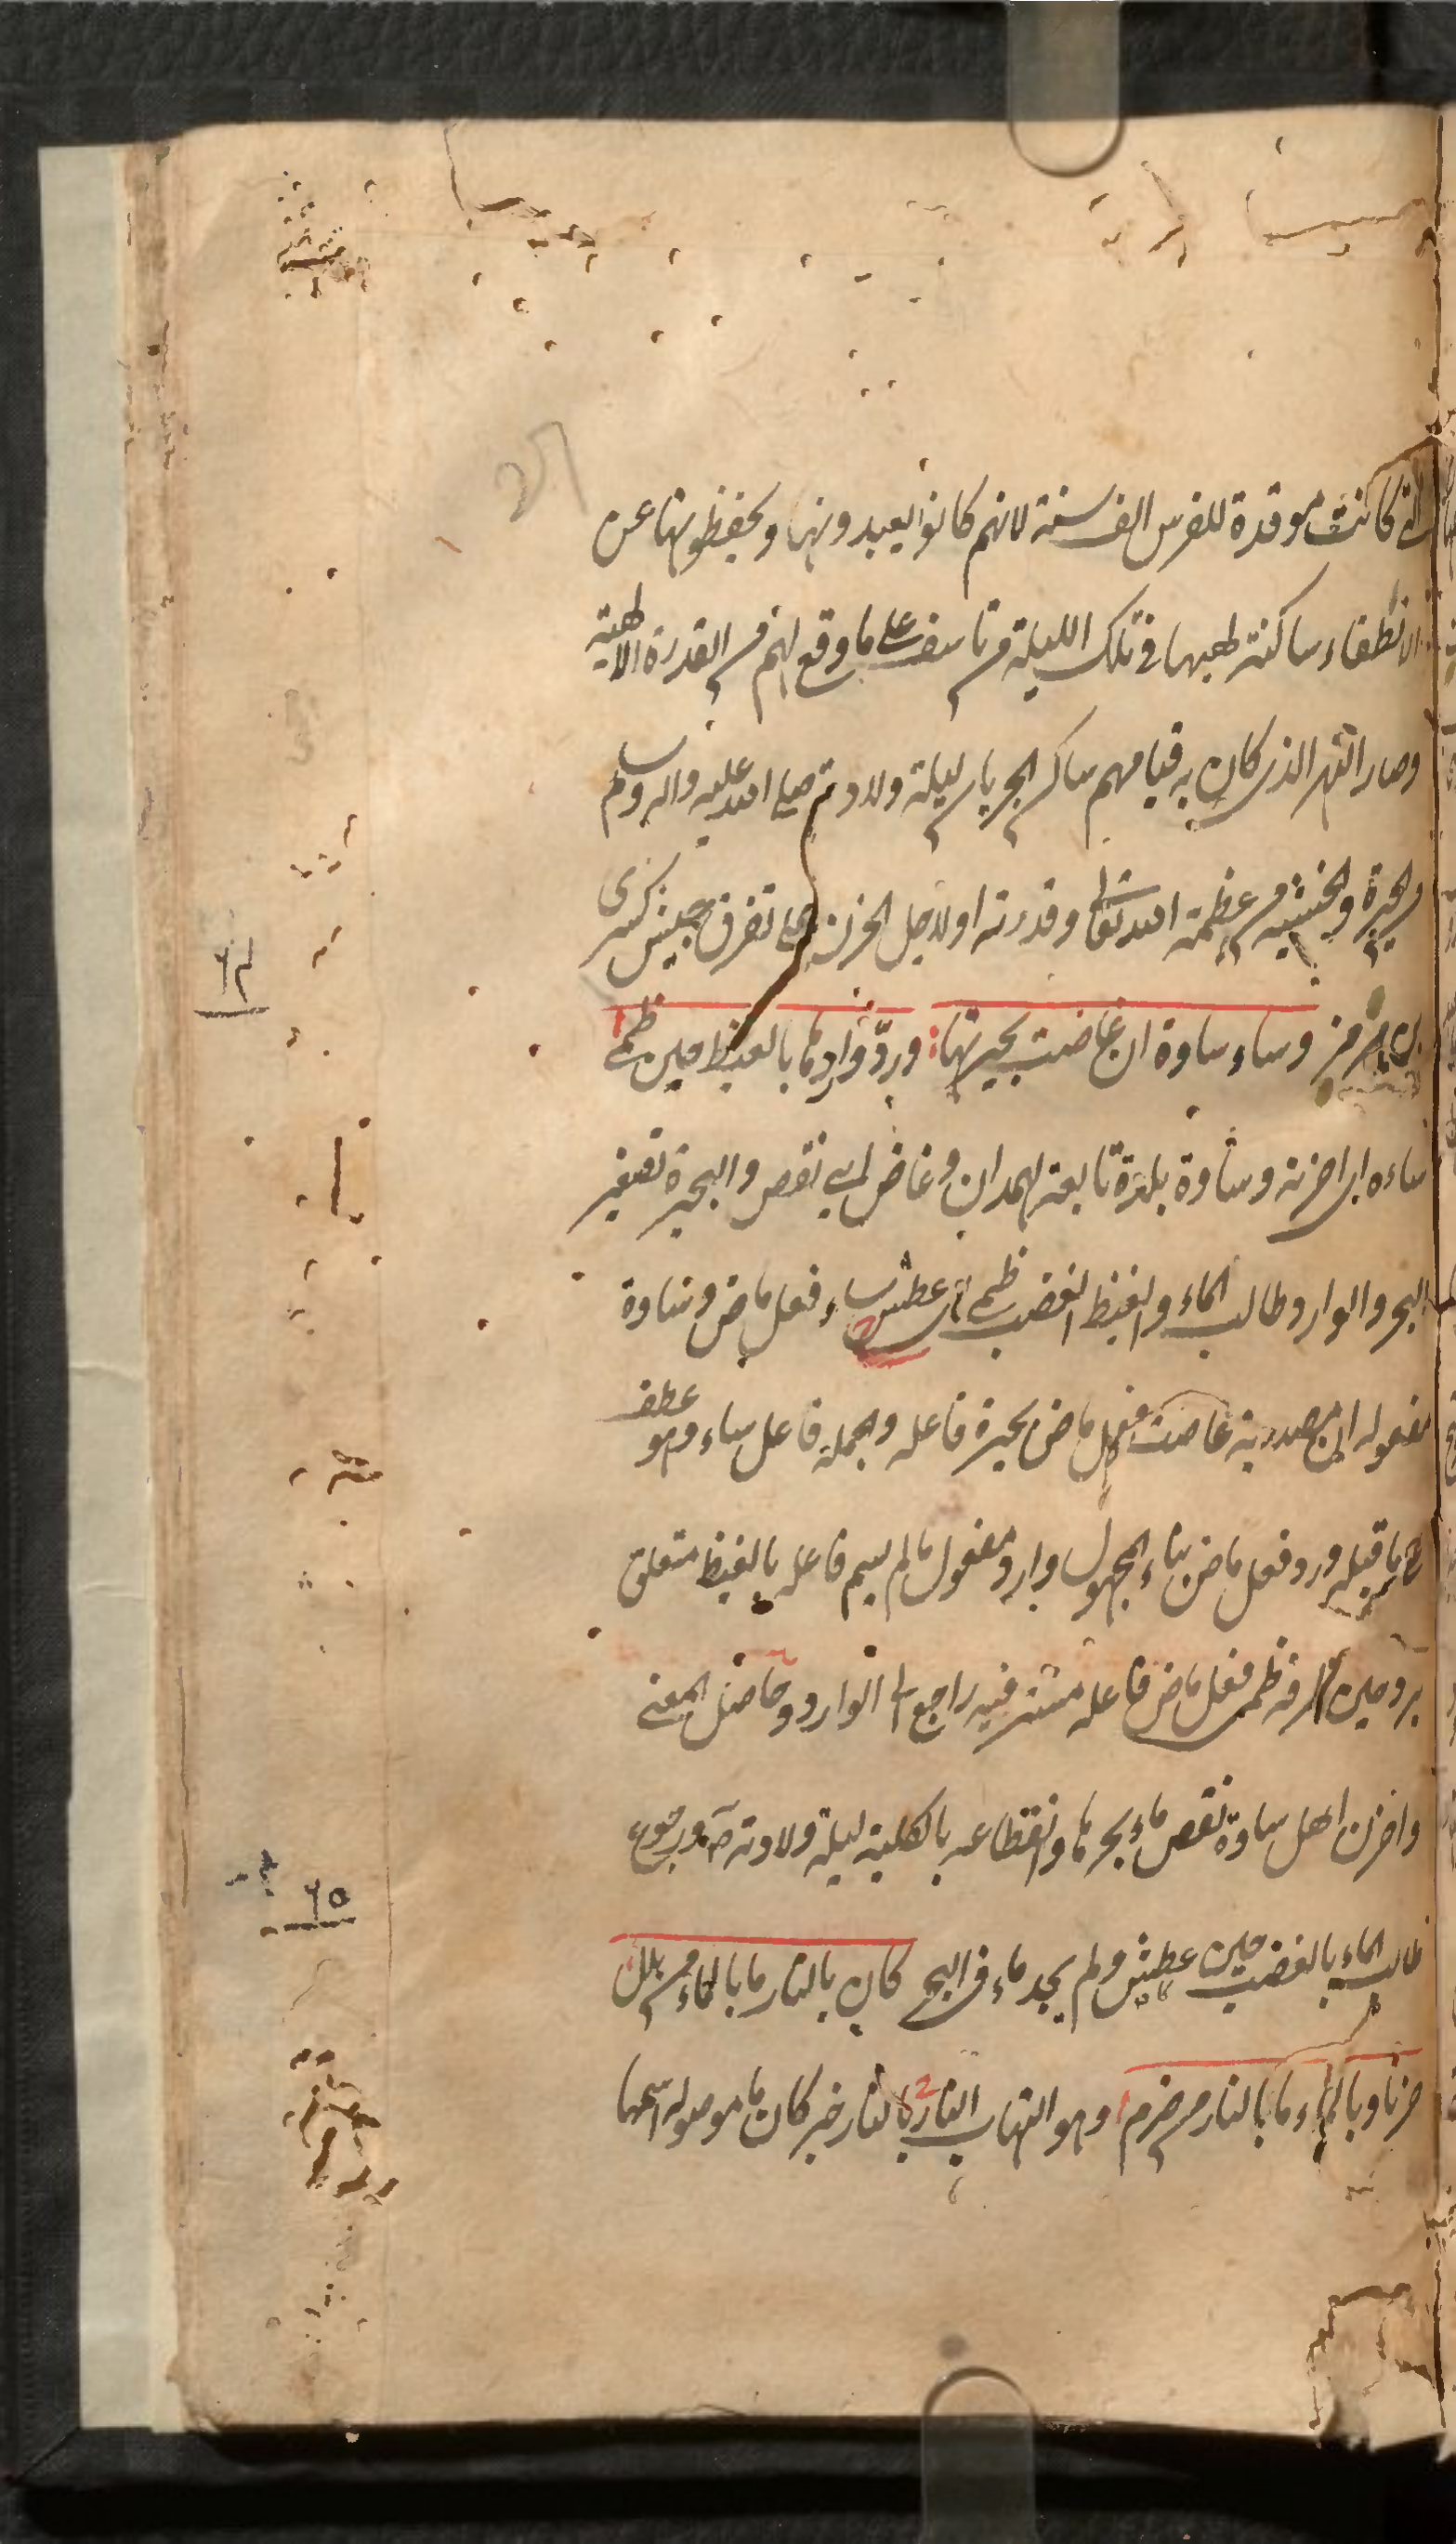 التي كانت موقدة للفرس الف سنة لانهم كانوا يعبدونها ويحفظونها عن
الانطفاء ساكنة لهبها في تلك الليلة من تاسف على ما وقع لهم من القدرة الالهية
وصار النهر الذى كان به قيامهم ساكن الجريان ليلة ولادته صلى الله عليه واله وسلم
من الحيرة والخشية من عظمة الله تعالى وقدرته او لاجل الحزن على تفرق جيش كسرى
بن هرمز وساء ساوة ان غاضت بحيرتها وردّ واردها بالغيظ حين ظمى
ساءه اى احزنه وساوة بلدة تابعة لهمدان وغاض اى نقص والبحيرة تصغير
البحر والوارد طالب الماء والغيظ الغضب ظمى اى عطش ساء فعل ماض وساوة
مفعوله ان مصدرية غاضت فعل ماض بحيرة فاعله والجملة فاعل ساء وهو عطف
على ما قبله ورد فعل ماض بناء المجهول وارد مفعول ما لم يسم فاعله بالغيظ متعلق
برد وحين ظرفه ظمى فعل ماض فاعله مستتر فيه راجع الى الوارد وحاصل المعنى
واحزن اهل ساوة نقص ماء بحرها وانقطاعه بالكلية ليلة ولادته صَ ورجوع
طالب الماء بالغضب حين عطش ولم يجد ماء فى البحر كان بالنار ما بالماء من بلل
حزنا وبالماء ما بالنار من ضرم وهو التهاب النار بالنار خبر كان ما موصوله اسمها
٦٤
٦٥